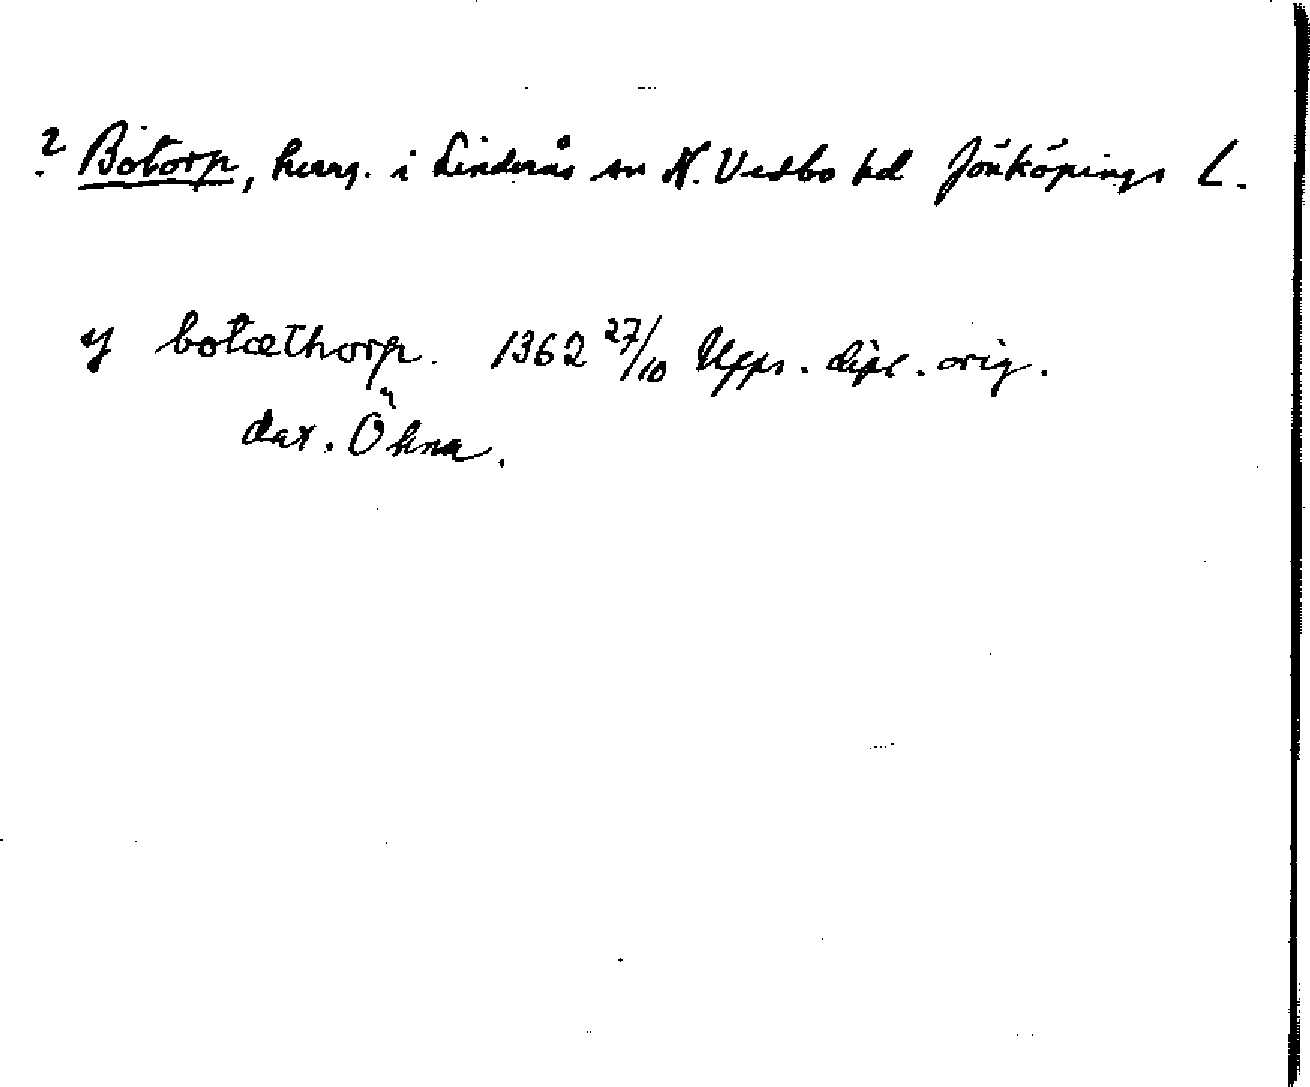 ? Botorp, herrg. i Linderås sn N. Vedbo hd Jönköpings L.
y botæthorp. 1362 27/10 Upps. dipl. orig.
dat. Öhna.